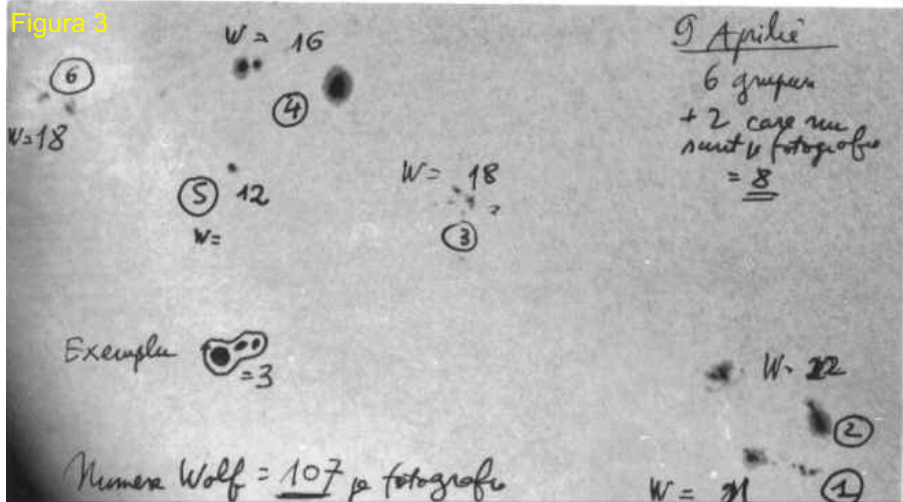 Figura 3
W = 16
9 Aprilie
6
6 grupuri
4
+ 2 care nu
W=18
sunt pe fotografie
W= 18
= 8
5 12
W=
3
Exemplu
= 3
W= 22
2
Numere Wolf = 107 pe fotografie
W = 21
1